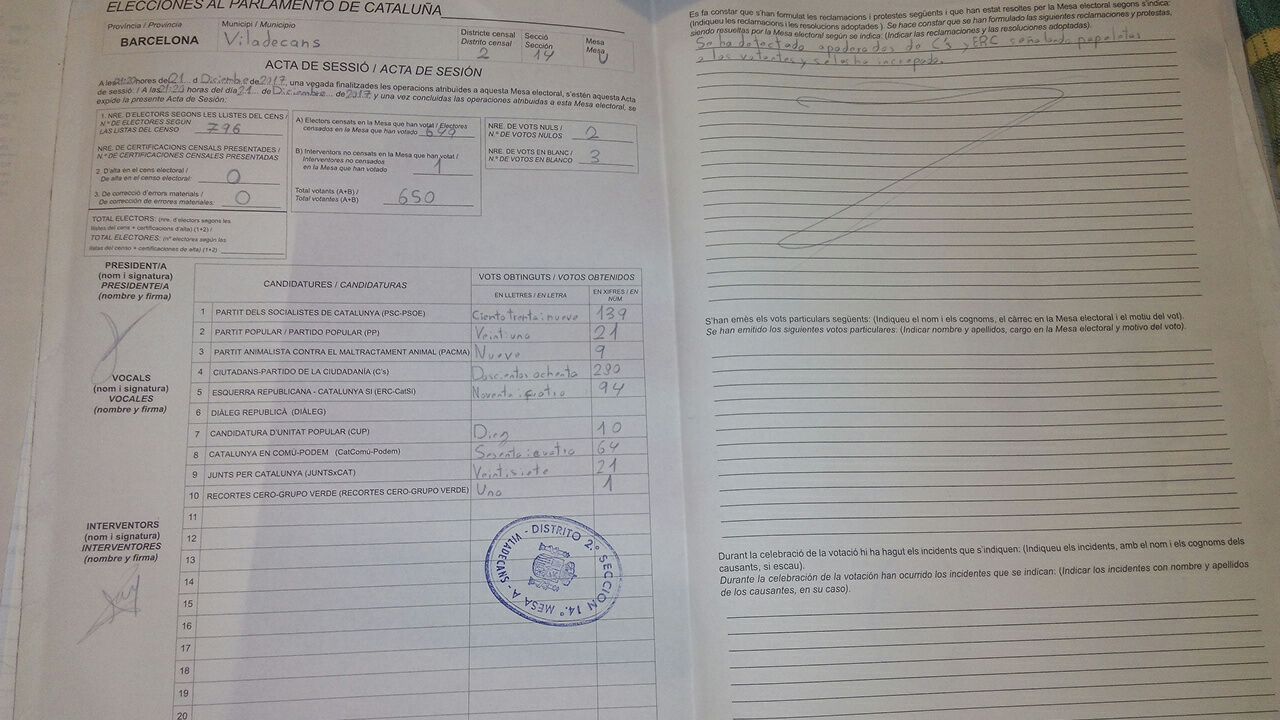 ELECCIONES AL PARLAMENTO DE CATALUÑA
Província / Provincia
Municipi / Municipio
Districte censal
Distrito censal
Secció
Sección
Mesa
Mesa
BARCELONA
Viladecans
2
14
ACTA DE SESSIÓ / ACTA DE SESIÓN
A les 21:20 hores de 21 d Diciembre de 2017, una vegada finalitzades les operacions atribuïdes a aquesta Mesa electoral, s'estén aquesta Acta
de sessió: / A las 21:20 horas del día 21 de Diciembre de 2017 y una vez concluidas las operaciones atribuidas a esta Mesa electoral, se
expide la presente Acta de Sesión:
1. NRE. D'ELECTORS SEGONS LES LLISTES DEL CENS /
N.º DE ELECTORES SEGÚN
LAS LISTAS DEL CENSO
796
NRE. DE CERTIFICACIONS CENSALS PRESENTADES /
N.º DE CERTIFICACIONES CENSALES PRESENTADAS
2. D'alta en el cens electoral /
De alta en el censo electoral:
0
3. De correcció d'errors materials /
De corrección de errores materiales:
0
TOTAL ELECTORS: (nre. d'electors segons les
llistes del cens + certificacions d'alta) (1+2) /
TOTAL ELECTORES: (nº electores según las
listas del censo + certificaciones de alta) (1+2):
A) Electors censats en la Mesa que han votat / Electores
censados en la Mesa que han votado
649
B) Interventors no censats en la Mesa que han votat /
Interventores no censados
en la Mesa que han votado
1
Total votants (A+B) /
Total votantes (A+B)
650
NRE. DE VOTS NULS /
N.º DE VOTOS NULOS
2
NRE. DE VOTS EN BLANC /
N.º DE VOTOS EN BLANCO
3
PRESIDENT/A
(nom i signatura)
PRESIDENTE/A
(nombre y firma)
VOCALS
(nom i signatura)
VOCALES
(nombre y firma)
INTERVENTORS
(nom i signatura)
INTERVENTORES
(nombre y firma)
CANDIDATURES / CANDIDATURAS
VOTS OBTINGUTS / VOTOS OBTENIDOS
EN LLETRES / EN LETRA
EN XIFRES / EN NÚM
1 PARTIT DELS SOCIALISTES DE CATALUNYA (PSC-PSOE) Ciento treinta i nueve 139
2 PARTIT POPULAR / PARTIDO POPULAR (PP) Veint uno 21
3 PARTIT ANIMALISTA CONTRA EL MALTRACTAMENT ANIMAL (PACMA) Nueve 9
4 CIUTADANS-PARTIDO DE LA CIUDADANÍA (C's) Doscientos ochenta 280
5 ESQUERRA REPUBLICANA - CATALUNYA SÍ (ERC-CatSí) Noventa i cuatro 94
6 DIÀLEG REPUBLICÀ (DIÀLEG)
7 CANDIDATURA D'UNITAT POPULAR (CUP) Diez 10
8 CATALUNYA EN COMÚ-PODEM (CatComú-Podem) Sesenta i cuatro 64
9 JUNTS PER CATALUNYA (JUNTSxCAT) Veintisiete 27
10 RECORTES CERO-GRUPO VERDE (RECORTES CERO-GRUPO VERDE) Uno 1
11
12
13
14
15
16
17
18
19
20
VILADECANS - DISTRITO 2.º SECCION 14.º MESA A
Es fa constar que s'han formulat les reclamacions i protestes següents i que han estat resoltes per la Mesa electoral segons s'indica:
(Indiqueu les reclamacions i les resolucions adoptades). Se hace constar que se han formulado las siguientes reclamaciones y protestas,
siendo resueltas por la Mesa electoral según se indica: (Indicar las reclamaciones y las resoluciones adoptadas).
Se ha detectado apoderados de C's y ERC señalando papeletas
a los votantes y se les ha increpado.
S'han emès els vots particulars següents: (Indiqueu el nom i els cognoms, el càrrec en la Mesa electoral i el motiu del vot).
Se han emitido los siguientes votos particulares: (Indicar nombre y apellidos, cargo en la Mesa electoral y motivo del voto).
Durant la celebració de la votació hi ha hagut els incidents que s'indiquen: (Indiqueu els incidents, amb el nom i els cognoms dels
causants, si escau).
Durante la celebración de la votación han ocurrido los incidentes que se indican: (Indicar los incidentes con nombre y apellidos
de los causantes, en su caso).